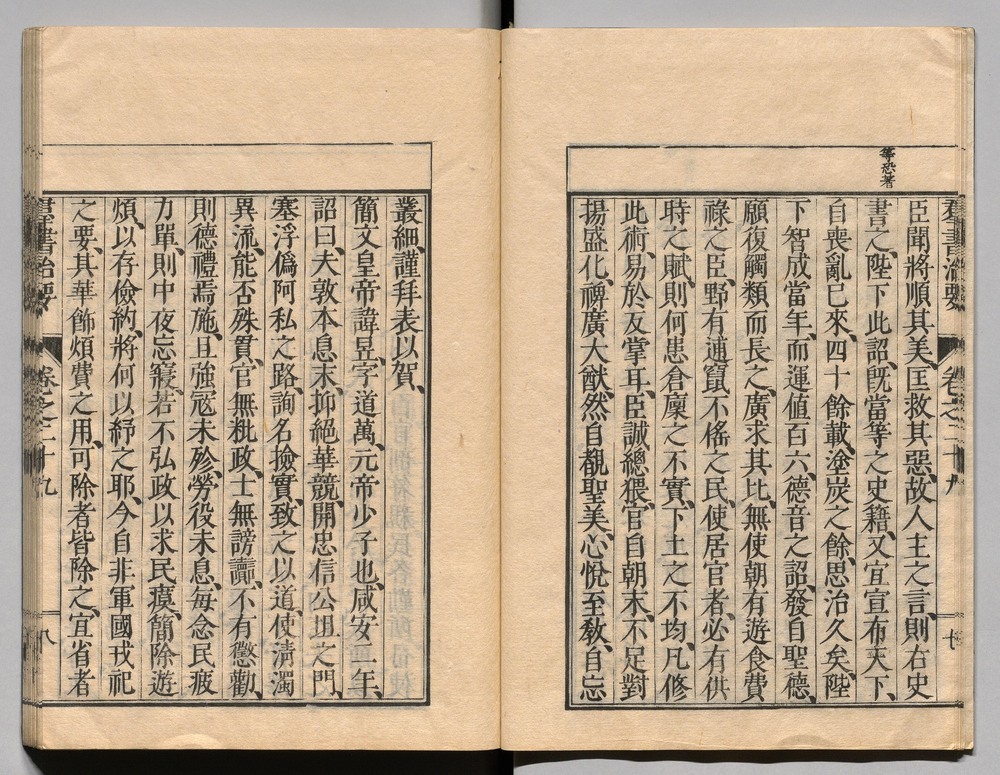 等恐著
群書治要 卷之二十九 七
臣聞將順其美、匡救其惡、故人主之言、則右史
書之、陛下此詔、旣當等之史籍、又宜宣布天下、
自喪亂已來、四十餘載、塗炭之餘、思治久矣、陛
下智成當年、而運値百六、德音之詔、發自聖德、
願復觸類而長之、廣求其比、無使朝有遊食費
祿之臣、野有逋竄不徭之民、使居官者、必有供
時之賦、則何患倉廩之不實、下土之不均、凡修
此術、易於反掌耳、臣誠總猥、官自朝末、不足對
揚盛化、裨廣大猷、然自覩聖美、心悅至敎、自忘
叢細、謹拜表以賀、
簡文皇帝諱昱、字道萬、元帝少子也、咸安二年、
詔曰、夫敦本息末、抑絕華競、開忠信公坦之門、
塞浮僞阿私之路、詢名撿實、致之以道、使淸濁
異流、能否殊貫、官無粃政、士無謗讟、不有懲勸、
則德禮焉施、且強寇未殄、勞役未息、每念民疲
力單、則中夜忘寢、若不弘政以求民瘼、簡除遊
煩、以存儉約、將何以紓之耶、今自非軍國戎祀
之要、其華飾煩費之用、可除者皆除之、宜省者
群書治要 卷之二十九 八